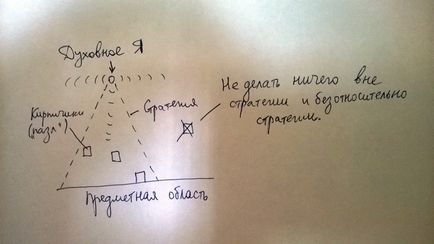 Духовное Я
Кирпичики
(пазл)
Стратегия
Не делать ничего вне
стратегии и безотносительно
стратегии.
Предметная область